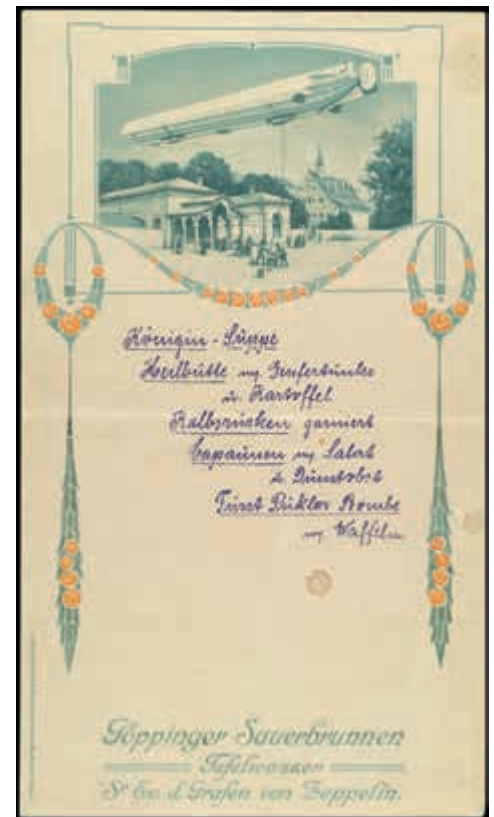 Königin-Suppe
Heilbutte m. Genfertunke
u. Kartoffel
Kalbsrücken garniert
Capaunen m. Salat
u. Dunstobst
Fürst Pükler Bombe
m. Waffeln
Göppinger Sauerbrunnen
Tafelwasser
Sr. Ex. d. Grafen von Zeppelin.